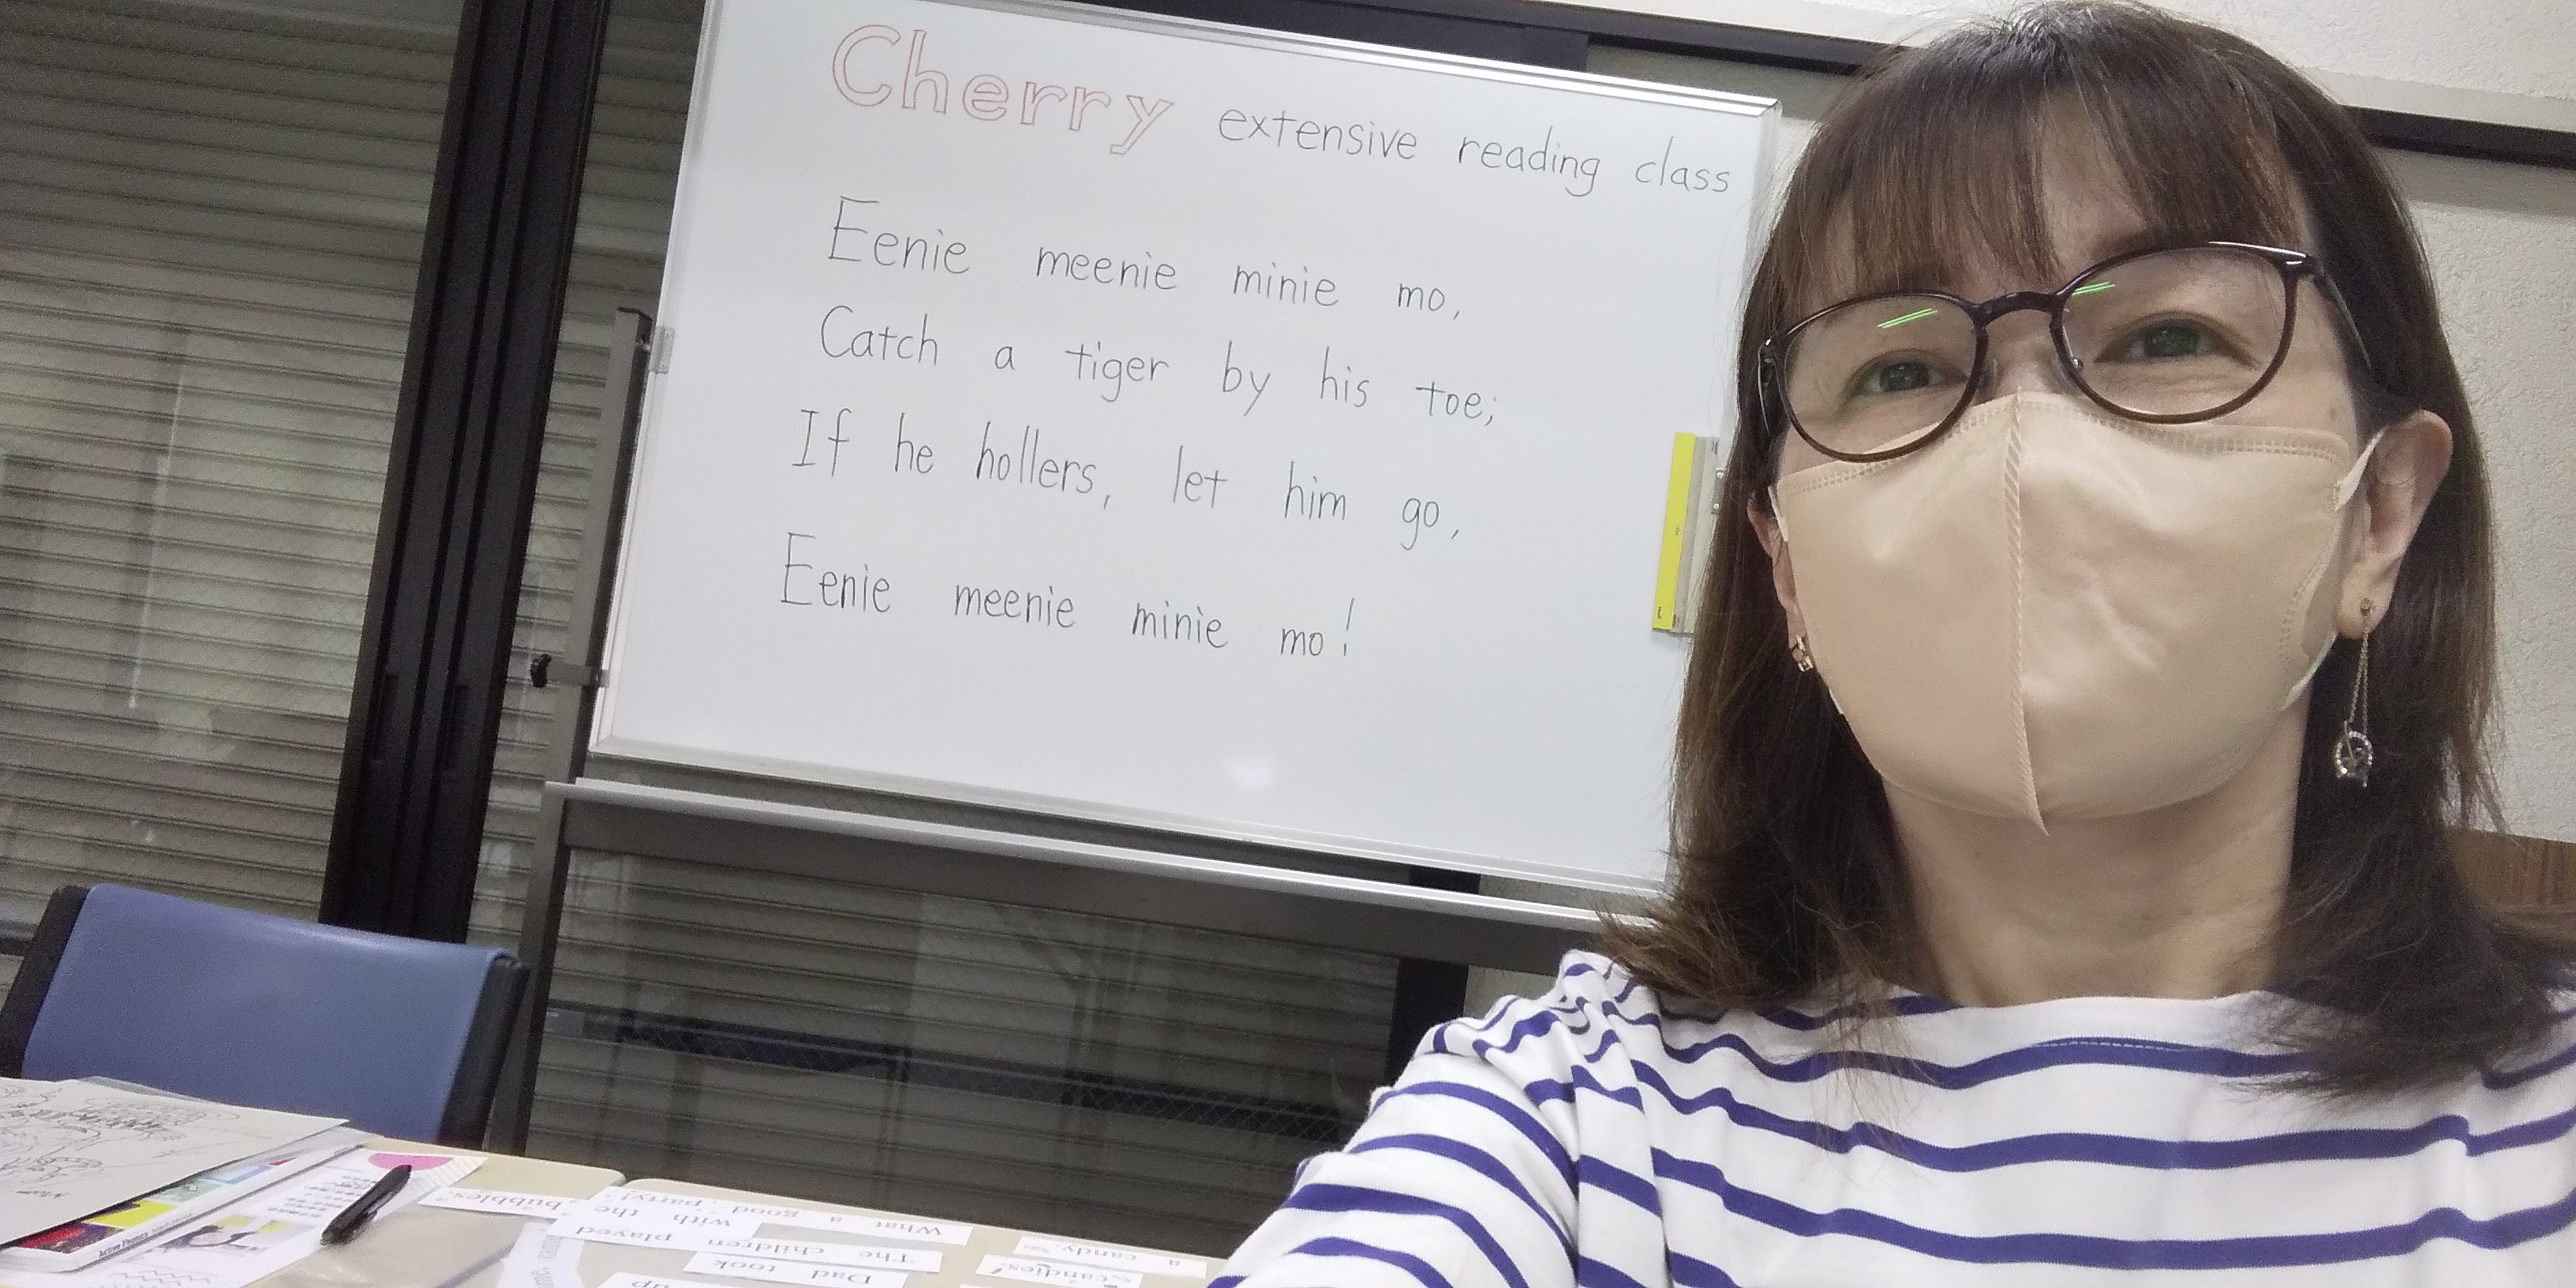 Cherry extensive reading class
Eenie meenie minie mo,
Catch a tiger by his toe;
If he hollers, let him go,
Eenie meenie minie mo!
What a good party!
with the bubbles.
The children played
Dad took
up
a candy
candies!